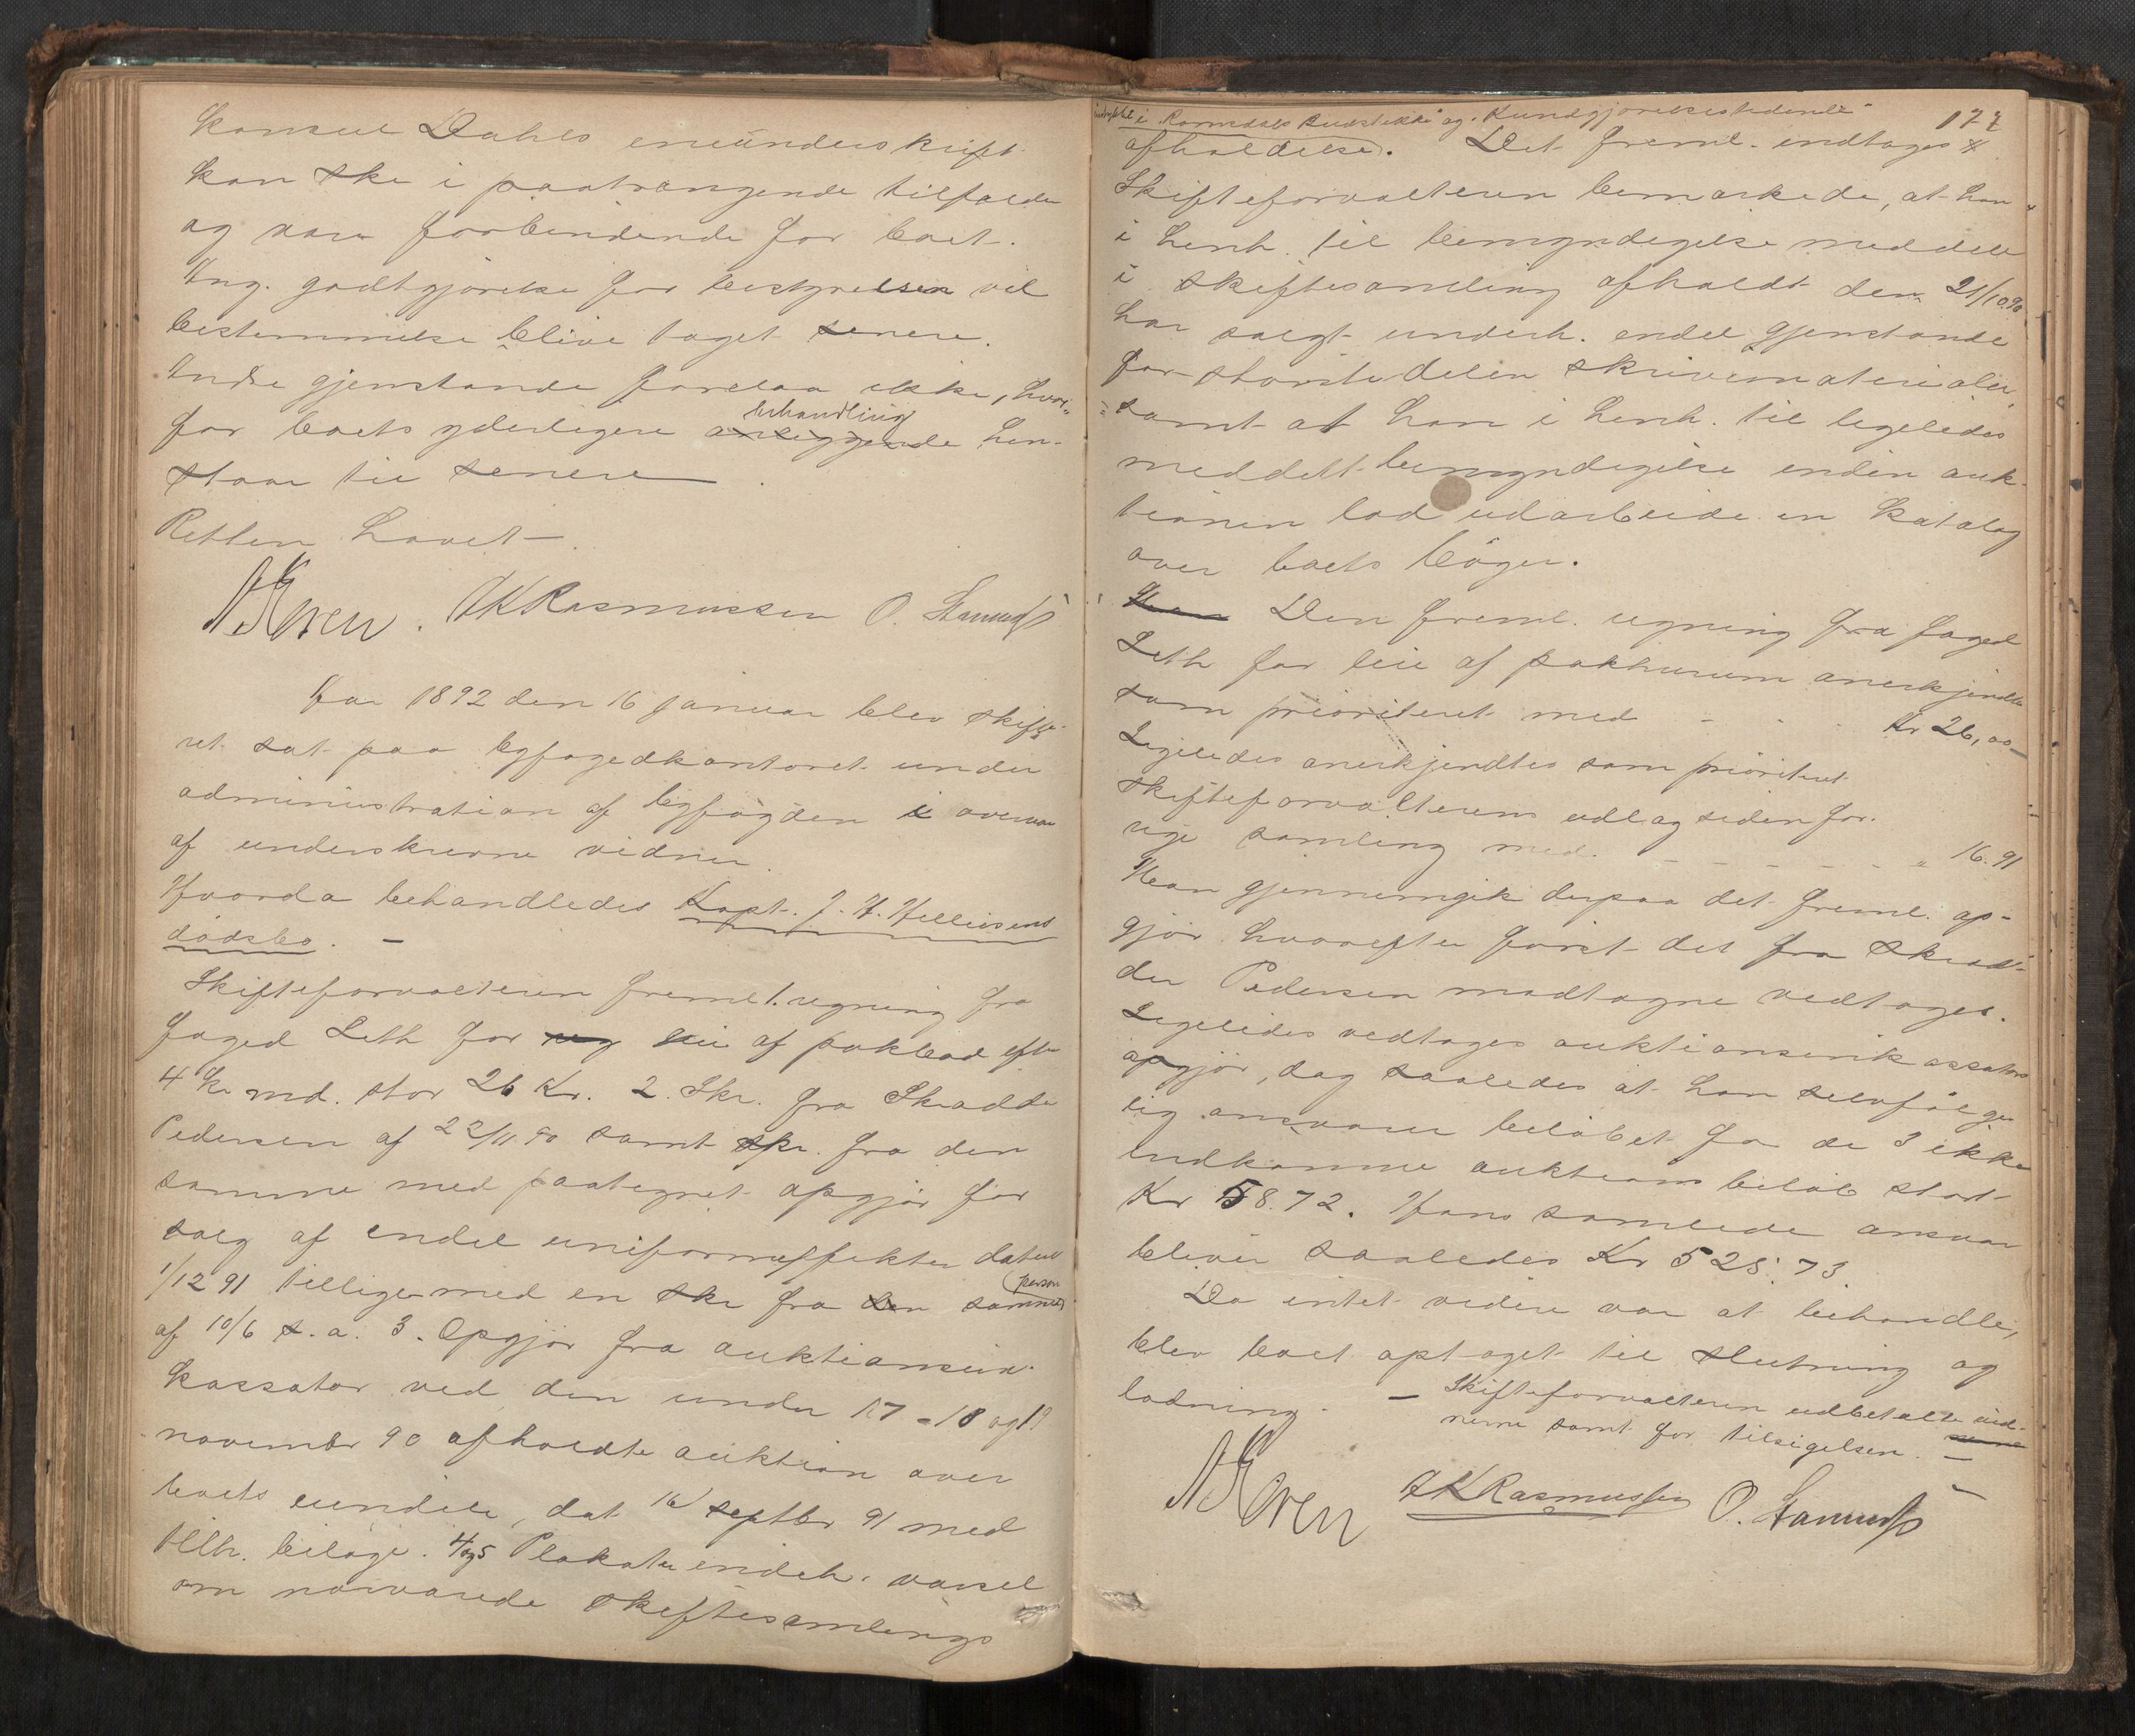 konsul Dahls eneunderskrift
kan ske i paatrængende tilfælde
og være forbindende for boet.
Ang. godtgjørelse for bestyrelsen vil
bestemmelse blive taget senere.
Andre gjenstande forelaa ikke, hvor-
for boets yderligere behandling hen-
staar til senere.
Retten hævet.
JKRasmussen O.
Aar 1892 den 16 januar blev skifte-
ret sat paa byfogedkontoret under
administration af byfogden i overvær
af underskrevne vidner
Hvorda behandledes Kapt. J. H.
dødsbo. —
Skifteforvalteren freml 1. regning fra
foged Leth for leie af pakbod efter
4 Kr md. stor 26 Kr. 2. Skr. fra Skrædder
Pedersen af 22/11 90 samt skr. fra den
samme med paategnet opgjør for
salg af endel uniformseffekter dateret
1/12 91 tilligemed en skr fra den samme person
af 10/6 s.a. 3. Opgjør fra auktionsin-
kassator ved den under 17 - 18 og 19
novembr 90 afholdte auktion over
boets eiendele, dat 16 septbr 91 med
tilh. bilage. 4 og 5 Plakater indeh. varsel
om nærværende skiftesamlings
indrykket i "Romsdals Budstikke" og "Kundgjørelsestidende"
177
afholdelse. Det freml. indtages
Skifteforvalteren bemærkede, at han
i henh. til bemyndigelse meddelt
i skiftesamling afholdt den 21/10 90
har solgt underh. endel gjenstande
for størstedelen skrivematerialier,
samt at han i henh. til ligeledes
meddelt bemyndigelse inden auk-
tionen lod udarbeide en katalog
over boets bøger.
Den freml. regning fra foged
Leth for leie af pakhusrum anerkjendtes
som prioriteret med - - - Kr 26,00
Ligeledes anerkjendtes som prioriteret
skifteforvalterens udlæg siden for-
rige samling med - - - - - - " 16.91
Man gjennemgik derpaa det freml. op-
gjør hvorefter først det fra skræd-
der Pedersen modtagne vedtoges.
Ligeledes vedtoges auktionsinkassators
opgjør, dog saaledes at han selvfølge-
lig ansvarer beløbet for de 3 ikke
indkomne auktions beløb stort
Kr 58.72. Hans samlede ansvar
bliver saaledes Kr 525.73.
Da intet videre var at behandle,
blev boet optaget til slutning og
lodning. — Skifteforvalteren udbetalte vid-
nerne samt for tilsigelsen. —
JKRasmussen O.